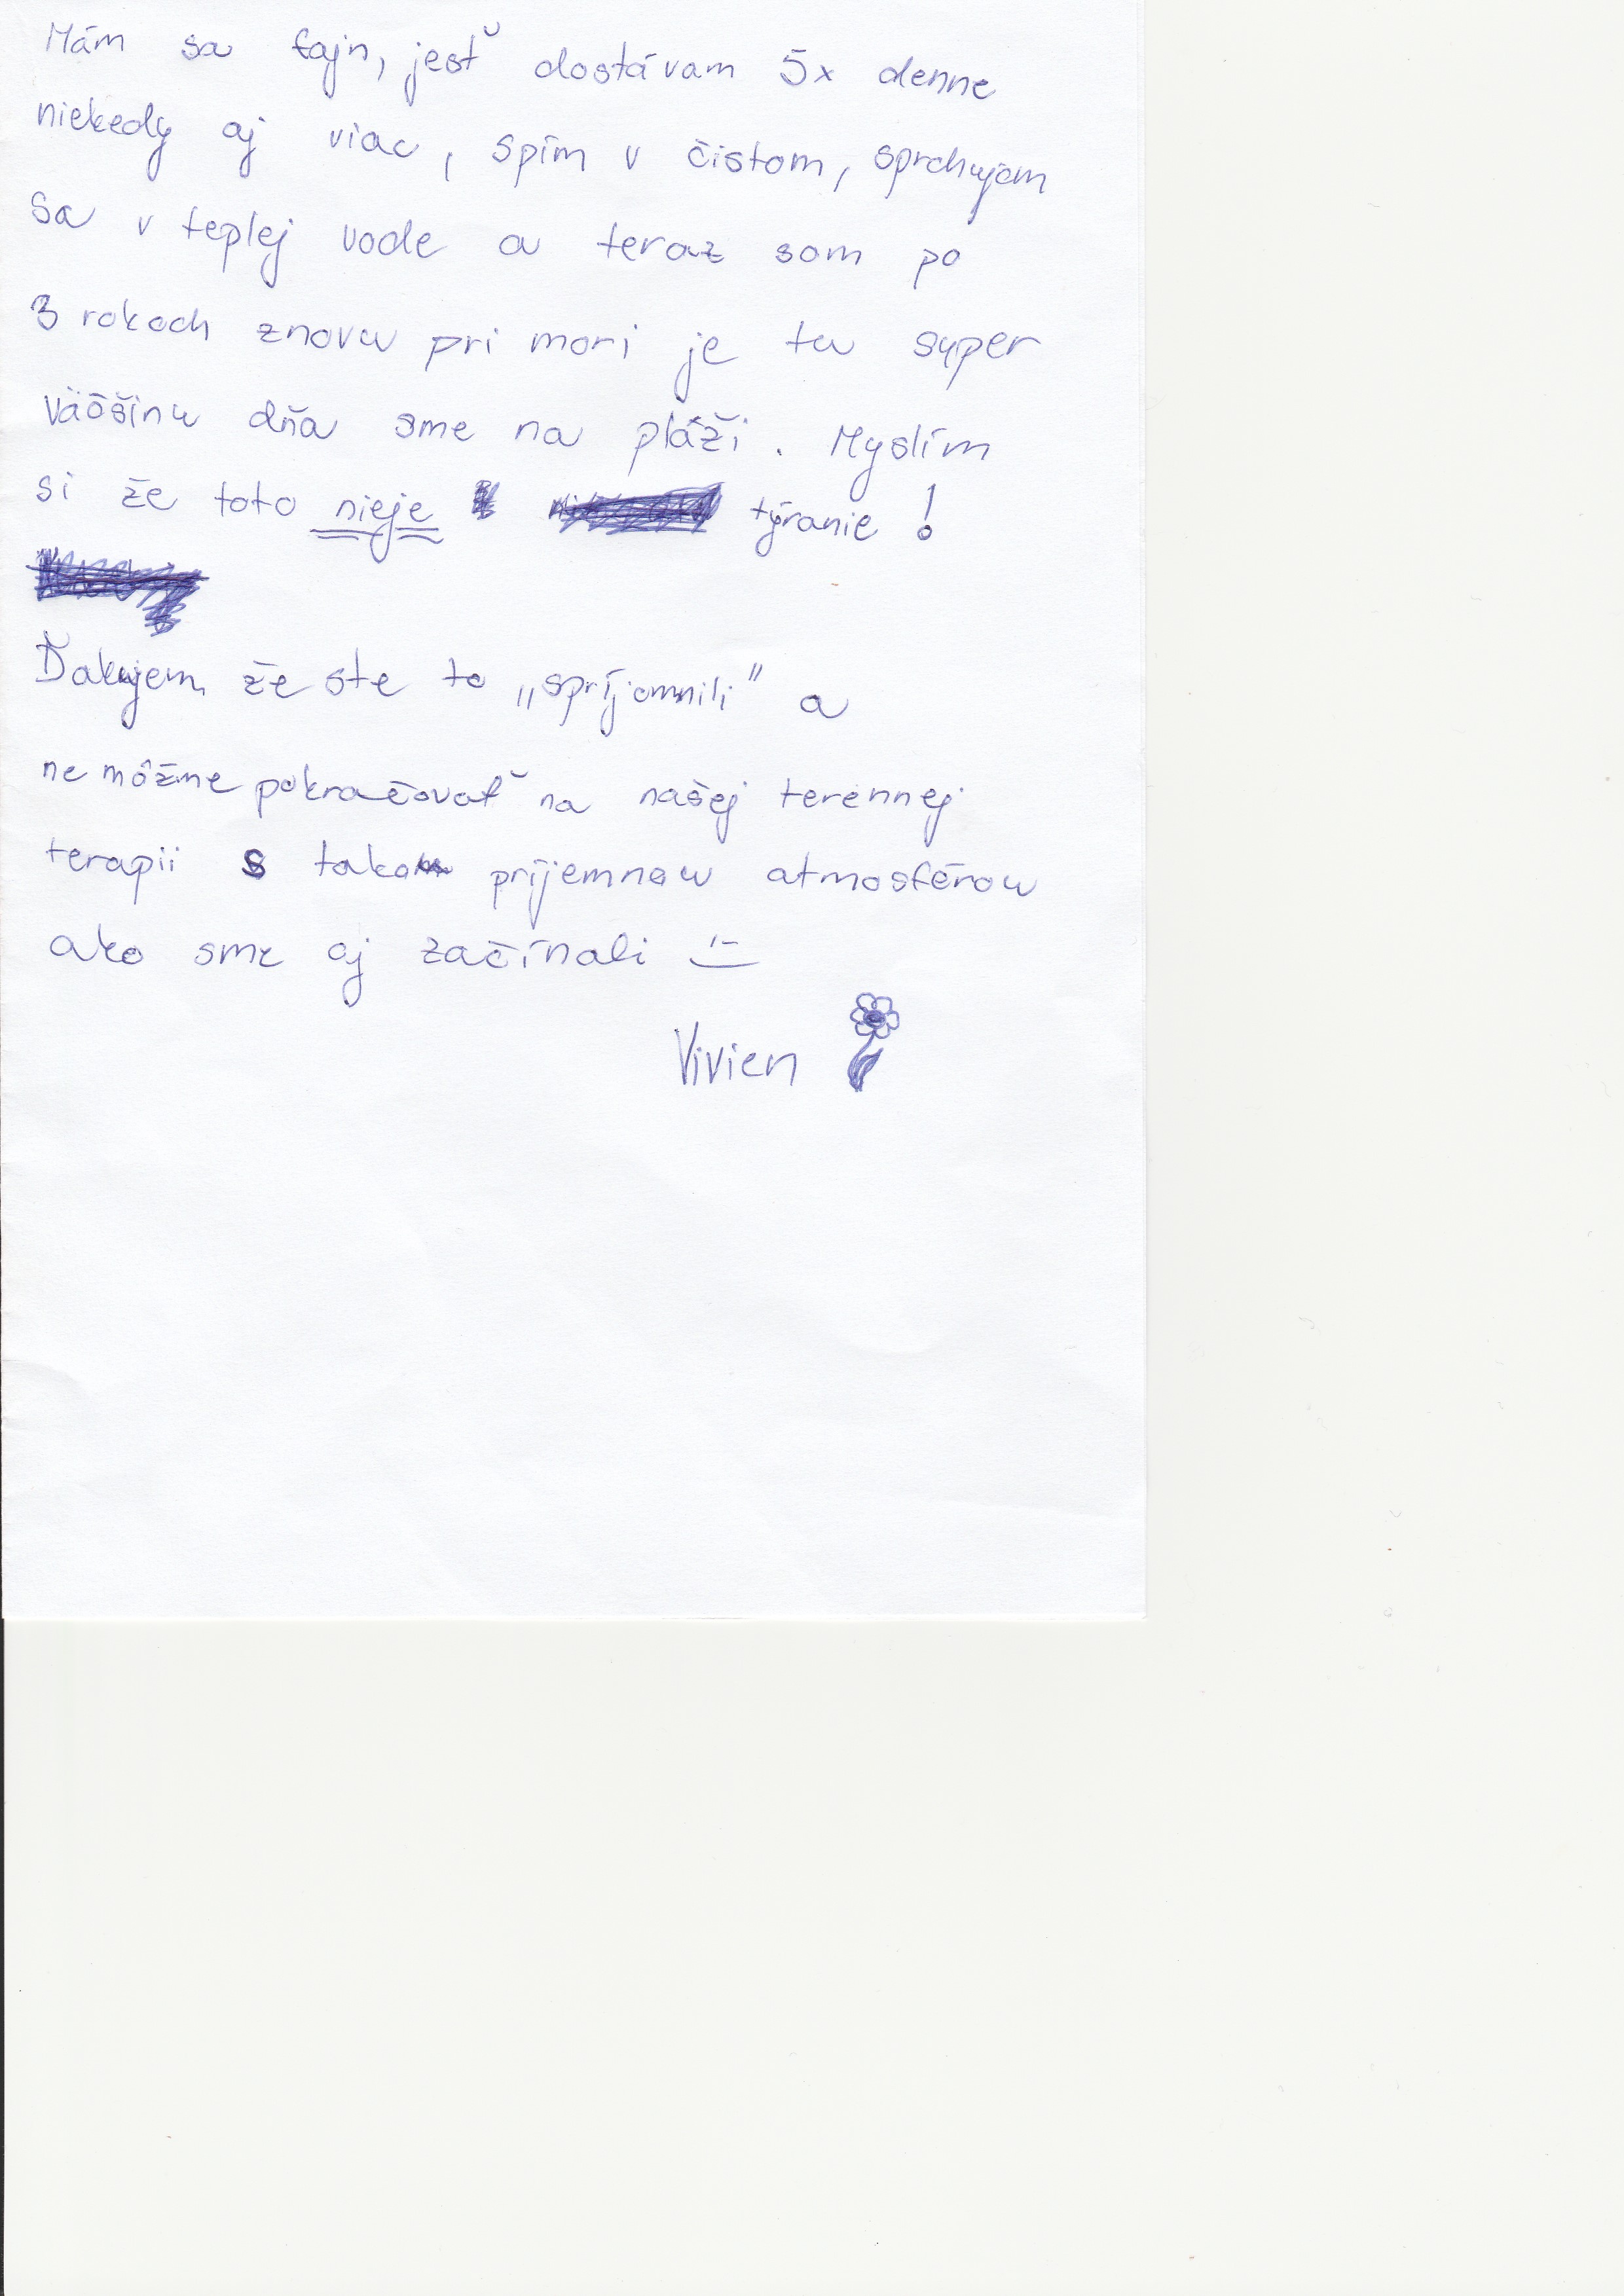 Mám sa fajn, jesť dostávam 5x denne
niekedy aj viac, spím v čistom, sprchujem
sa v teplej vode a teraz som po
3 rokoch znovu pri mori je tu super
väčšinu dňa sme na pláži. Myslím
si že toto nieje týranie!
Ďakujem že ste to „spríjemnili" a
nemôžme pokračovať na našej terénnej
terapii s takou príjemnou atmosférou
ako sme aj začínali :-)
Vivien